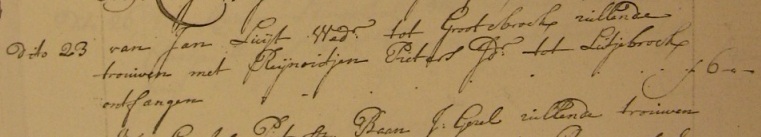 dito 23 van Jan Luijt Wedr. tot Grootebroek zullende
trouwen met Reijnoutjen Pieters Jdr. tot Lutjebroek
ontfangen . . . . . . f 6 - -
Pr. Baan J: Gesel zullende trouwen